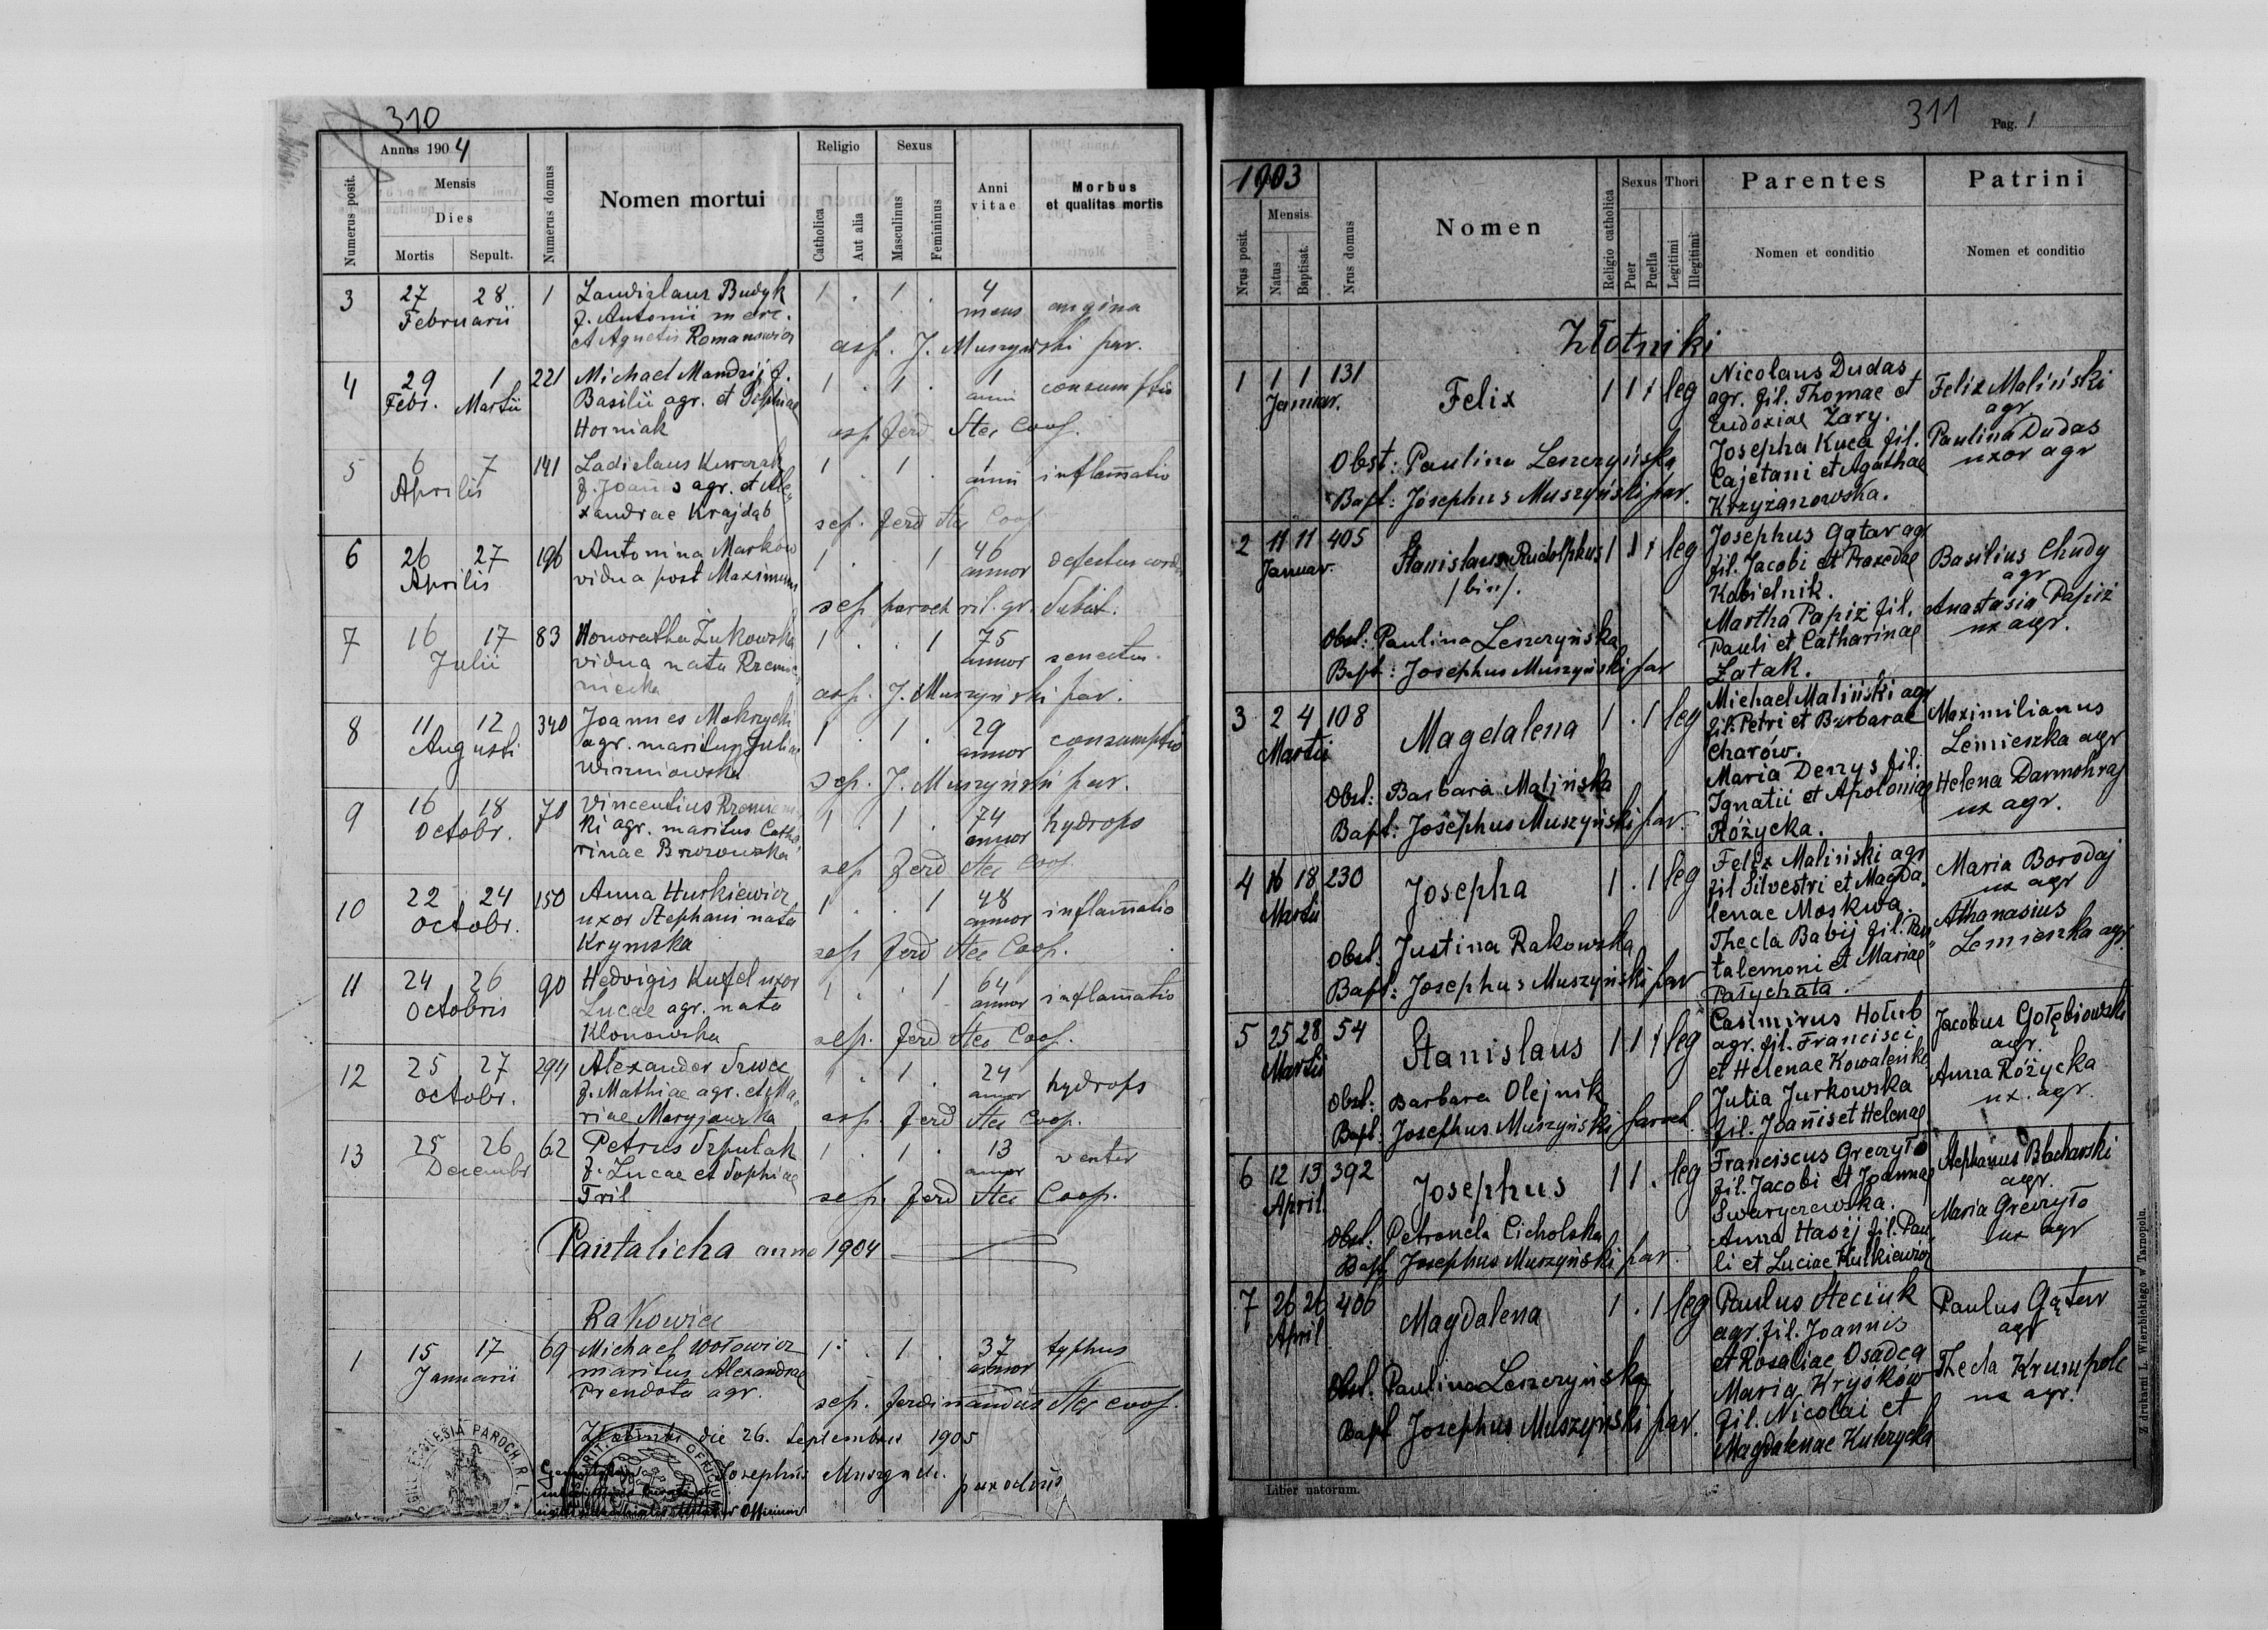 310
Annus 1904
Numerus posit.
Mensis
Dies
Mortis Sepult.
Numerus domus
Nomen mortui
Religio
Catholica
Aut alia
Sexus
Masculinus
Femininus
Anni vitae
Morbus
et qualitas mortis
3 27 28 1 Budyk 1 . 1 . 4 angina
Februarii f. Antonii merc. mens
et Agnetis Romanowicz
asp. J. Muszyński par.
4 29 1 221 Michael Mandzij f. 1 . 1 . 1 consumptio
Febr. Martii Basilii agr. et Sophiae anni
Horniak asp. Ferd Stec Coop.
5 6 7 141 Ladislaus 1 . 1 . 1 inflam̄atio
Aprilis f. Joan̄is agr. et Ale anni
xandrae Krajdąb
sep. Ferd Stec Coop
6 26 27 196 Antonina Markow 1 . . 1 46 defectus cordis
Aprilis vidua post annor
sep paroch rit. gr.
7 16 17 83 Honoratha Żukowska 1 . . 1 75
Julii vidua nata annor senectus.
asp. J. Muszyński par.
8 11 12 340 Joannes Mokrzycki 1 . 1 . 29
Augusti agr. maritus Juliae annor consumptio
Wiszniowska sep. J. Muszyński par.
9 16 18 70 Vincentius 1 . 1 . 74 hydrops
Octobr. ki agr. maritus Catha annor
rinae Brzozowska
sep Ferd Stec Coop
10 22 24 150 Anna Hurkiewicz 1 . . 1 48
Octobr. uxor Stephani nata annor inflam̄atio
Krymska sep Ferd Stec Coop.
11 24 26 90 Hedvigis Kufel uxor 1 . . 1 64
Octobris Lucae agr. nata annor inflam̄atio
Klonowska sep. Ferd Stec Coop.
12 25 27 294 Alexander Szwec 1 . 1 . 24 hydrops
Octobr. f. Mathiae agr. et Ma annor
riae Maryjowska asp. Ferd Stec Coop.
13 25 26 62 Petrus Szpulak 1 . 1 . 13 venter
Decembr f. Lucae et Sophiae annor
Tril sep. Ferd Stec Coop.
Pantalicha anno 1904
Rakowiec
1 15 17 69 Michael Wołowicz 1 . 1 . 37 typhus
Januarii maritus Alexandrae annor
Prendota agr.
sep. Ferdinandus Stec coop.
Złotniki die 26. Septembris 1905
Josephus Muszyński parochus
311 Pag. 1
1903
Nrus posit.
Mensis
Natus
Baptisat.
Nrus domus
Nomen
Religio catholica
Sexus
Puer
Puella
Thori
Legitimi
Illegitimi
Parentes
Nomen et conditio
Patrini
Nomen et conditio
Złotniki
1 1 1 131 Felix 1 1 . leg Nicolaus Dudas
Januar. agr. fil. Thomae et Felix Maliński
Eudoxiae Zary. agr
Josepha Kucą fil. Paulina Dudas
Obst: Paulina Leszczyńska Cajetani et Agathae uxor agr
Bapt: Josephus Muszyński par. Krzyżanowska.
2 11 11 405 Stanislaus Rudolphus 1 1 . leg Josephus Gątar agr
Januar. /bin/. fil. Jacobi et Praxedae Basilius Chudy
Kobielnik. agr
Martha Papiż fil. Anastasia Papiż
Obst: Paulina Leszczyńska Pauli et Catharinae ux agr.
Bapt: Josephus Muszyński par Łatak.
3 2 4 108 Magdalena 1 . 1 leg Michael Maliński agr
Martii fil. Petri et Barbarae Maximilianus
Charów. Lemieszka agr
Maria Denys fil.
Obst: Barbara Malińska Ignatii et Apoloniae Helena Darmohraj
Bapt: Josephus Muszyński par. Różycka. ux agr.
4 16 18 230 Josepha 1 . 1 leg Felix Maliński agr
Martii fil Silvestri et Magda Maria Borodaj
lenae Moskwa. ux agr
Obst. Justina Rakowska Thecla Babij fil. Pan Athanasius
talemoni et Mariae Lemieszka agr
Bapt: Josephus Muszyński par Pałychata.
5 25 28 54 Stanislaus 1 1 . leg Casimirus Hołub
Martii agr. fil. Francisci Jacobus Gołębiowski
et Helenae Kowaleńko agr.
Obst: Barbara Olejnik Julia Jurkowska Anna Różycka
Bapt. Josephus Muszyński paroch. fil. Joan̄is et Helenae ux. agr.
6 12 13 392 Josephus 1 1 . leg Franciscus Greczyło
April fil. Jacobi et Joannae Stephanus Blacharski
Swaryczewska. agr.
Obst: Petronela Cicholska Anna Hasij fil. Pau Maria Greczyło
Bapt Josephus Muszyński par. li et Luciae Kulkiewicz ux agr
7 26 26 406 Magdalena 1 . 1 leg Paulus Steciuk
April agr. fil. Joannis Paulus Gątar
et Rosaliae Osadca agr
Obst. Paulina Leszczyńska Maria Kryśków Thecla Krumpolc
fil. Nicolai et ux agr.
Bapt Josephus Muszyński par. Magdalenae Kulczycka
Liber natorum.
Z drukarni L. Wierzbickiego w Tarnopolu.